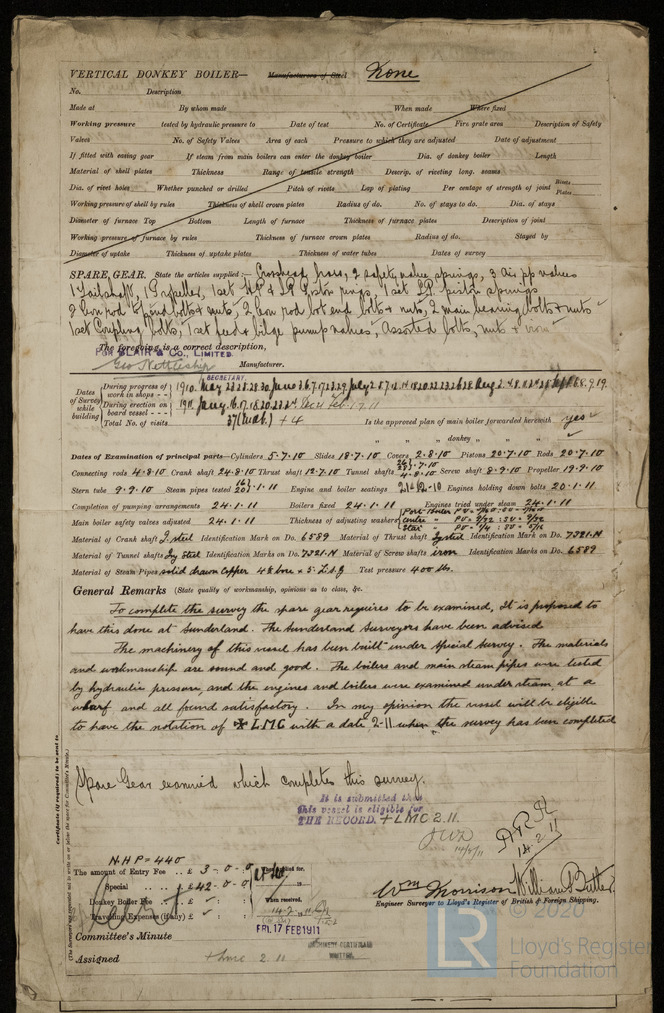 VERTICAL DONKEY BOILER— Manufacturers of Steel None
No. Description
Made at By whom made When made Where fixed
Working pressure tested by hydraulic pressure to Date of test No. of Certificate Fire grate area Description of Safety
Valves No. of Safety Valves Area of each Pressure to which they are adjusted Date of adjustment
If fitted with easing gear If steam from main boilers can enter the donkey boiler Dia. of donkey boiler Length
Material of shell plates Thickness Range of tensile strength Descrip. of riveting long. seams
Dia. of rivet holes Whether punched or drilled Pitch of rivets Lap of plating Per centage of strength of joint Rivets Plates
Working pressure of shell by rules Thickness of shell crown plates Radius of do. No. of stays to do. Dia. of stays
Diameter of furnace Top Bottom Length of furnace Thickness of furnace plates Description of joint
Working pressure of furnace by rules Thickness of furnace crown plates Radius of do. Stayed by
Diameter of uptake Thickness of uptake plates Thickness of water tubes Dates of survey
SPARE GEAR. State the articles supplied:— Crosshead brass, 2 safety valve springs, 3 air pp valves
1 Tailshaft, 1 Propeller, 1 set HP & IP Piston rings, 1 set LP piston springs
2 Con rod top end bolts & nuts, 2 Con rod bot end bolts & nuts, 2 main bearing bolts & nuts
1 set Coupling bolts, 1 set feed & bilge pump valves, Assorted bolts, nuts & iron
The foregoing is a correct description,
FOR BLAIR & Co., LIMITED.
Geo Nettleship Manufacturer.
SECRETARY.
Dates of Survey while building
During progress of work in shops - - 1910. May
During erection on board vessel - - - 1911 Jany. 16. 17. 18. 20. 23. 24
Total No. of visits 37 + 4 Is the approved plan of main boiler forwarded herewith yes
" " " donkey " " "
Dates of Examination of principal parts—Cylinders 5.7.10 Slides 18.7.10 Covers 2.8.10 Pistons 20.7.10 Rods 20.7.10
Connecting rods 4.8.10 Crank shaft 24.8.10 Thrust shaft 12.7.10 Tunnel shafts 4.8.10 Screw shaft 8.9.10 Propeller 19.9.10
Stern tube 9.9.10 Steam pipes tested 1.11 Engine and boiler seatings 21.12.10 Engines holding down bolts 20.1.11
Completion of pumping arrangements 24.1.11 Boilers fixed 24.1.11 Engines tried under steam 24.1.11
Main boiler safety valves adjusted 24.1.11 Thickness of adjusting washers Port Boiler
Centre "
Star "
Material of Crank shaft I. steel Identification Mark on Do. 6589 Material of Thrust shaft Ing steel Identification Mark on Do. 7321.N
Material of Tunnel shafts Ing steel Identification Marks on Do. 7321.N Material of Screw shafts iron Identification Marks on Do. 6589
Material of Steam Pipes solid drawn copper 4½ bore × 5. L.S.G Test pressure 400 lbs.
General Remarks (State quality of workmanship, opinions as to class, &c.
To complete the survey the spare gear requires to be examined, It is proposed to
have this done at Sunderland. The Sunderland Surveyors have been advised
The machinery of this vessel has been built under special survey. The materials
and workmanship are sound and good. The boilers and main steam pipes were tested
by hydraulic pressure, and the engines and boilers were examined under steam at a
wharf and all found satisfactory. In my opinion the vessel will be eligible
to have the notation of +LMC with a date 2-11. when the survey has been completed
Spare Gear examined which completes this survey.
It is submitted that
this vessel is eligible for
THE RECORD. + LMC 2.11.
14/2/11
14.2.11
NHP = 440
The amount of Entry Fee .. £ 3 - 0 - 0
Special .. £ 42 - 0 - 0
Donkey Boiler Fee .. £
Travelling Expenses (if any) £
When received,
Wm Morrison William Butler
Engineer Surveyor to Lloyd's Register of British & Foreign Shipping.
Committee's Minute FRI. 17 FEB 1911
Assigned + Lmc 2.11
MACHINERY CERTIFICATE
WRITTEN.
Certificate (if required) to be sent to
(The Surveyors are requested not to write on or below the space for Committee's Minute.)
© 2020
LR
Lloyd's Register
Foundation